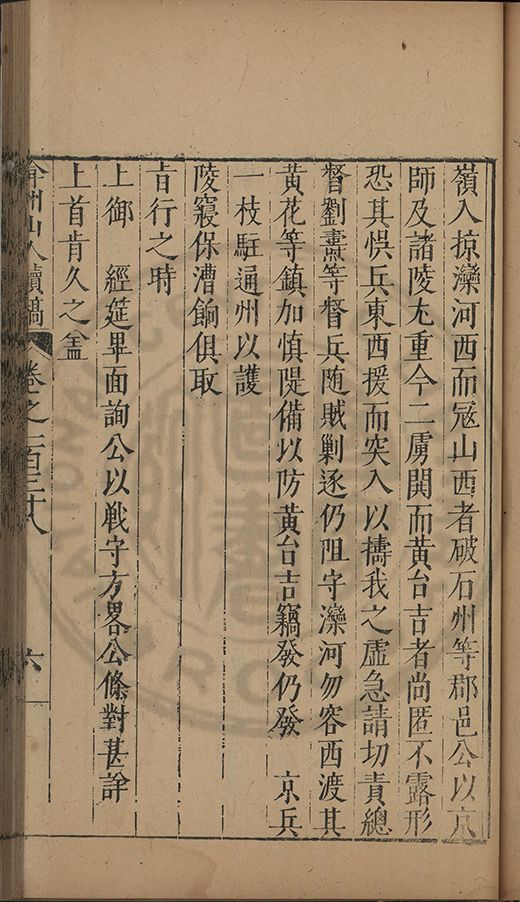 嶺入掠灤河西而冦山西者破石州等郡邑公以京
師及諸陵尢重今二虜閧而黄台吉者尚匿不露形
恐其悞兵東西援而突入以擣我之虛急請切責總
督劉燾等督兵随賊剿逐仍阻守灤河勿容西渡其
黄花等鎮加慎隄備以防黄台吉竊發仍發　京兵
一枝駐通州以護
陵寢保漕餉俱取
㫖行之時
上御　經筵畢面詢公以戦守方畧公條對甚詳
上首肯久之盖
弇州山人續稿　卷之一百三十八　六